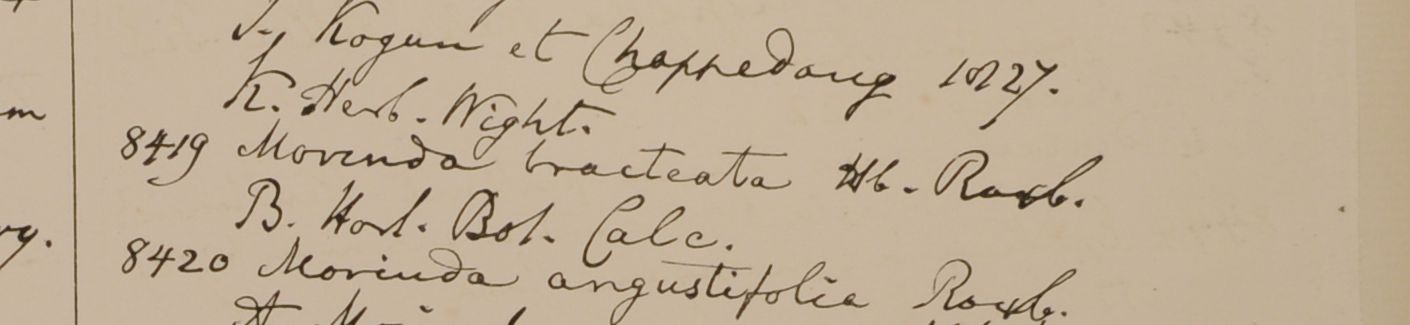 J. Kogun et Chappedong 1827.
K. Herb. Wight.
8419 Morinda bracteata Hb. Roxb.
B. Hort. Bot. Calc.
8420 Morinda angustifolia Roxb.